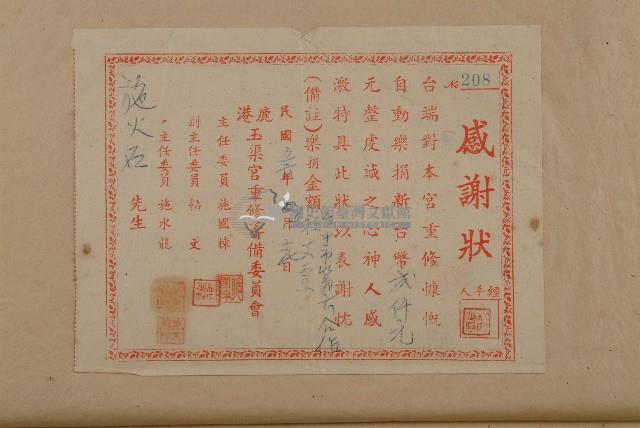 № 208
感謝狀
經手人
台端對本宮重修慷慨
自動樂捐新台幣貳仟元
元整虔誠之心神人感
激特具此狀以表謝忱
(備註)樂捐金額
民國五 年 月 日
鹿港玉渠宮重修籌備委員會
主任委員 施國棟
副主任委員 粘 文
〃主任委員 施水龍
施火石 先生